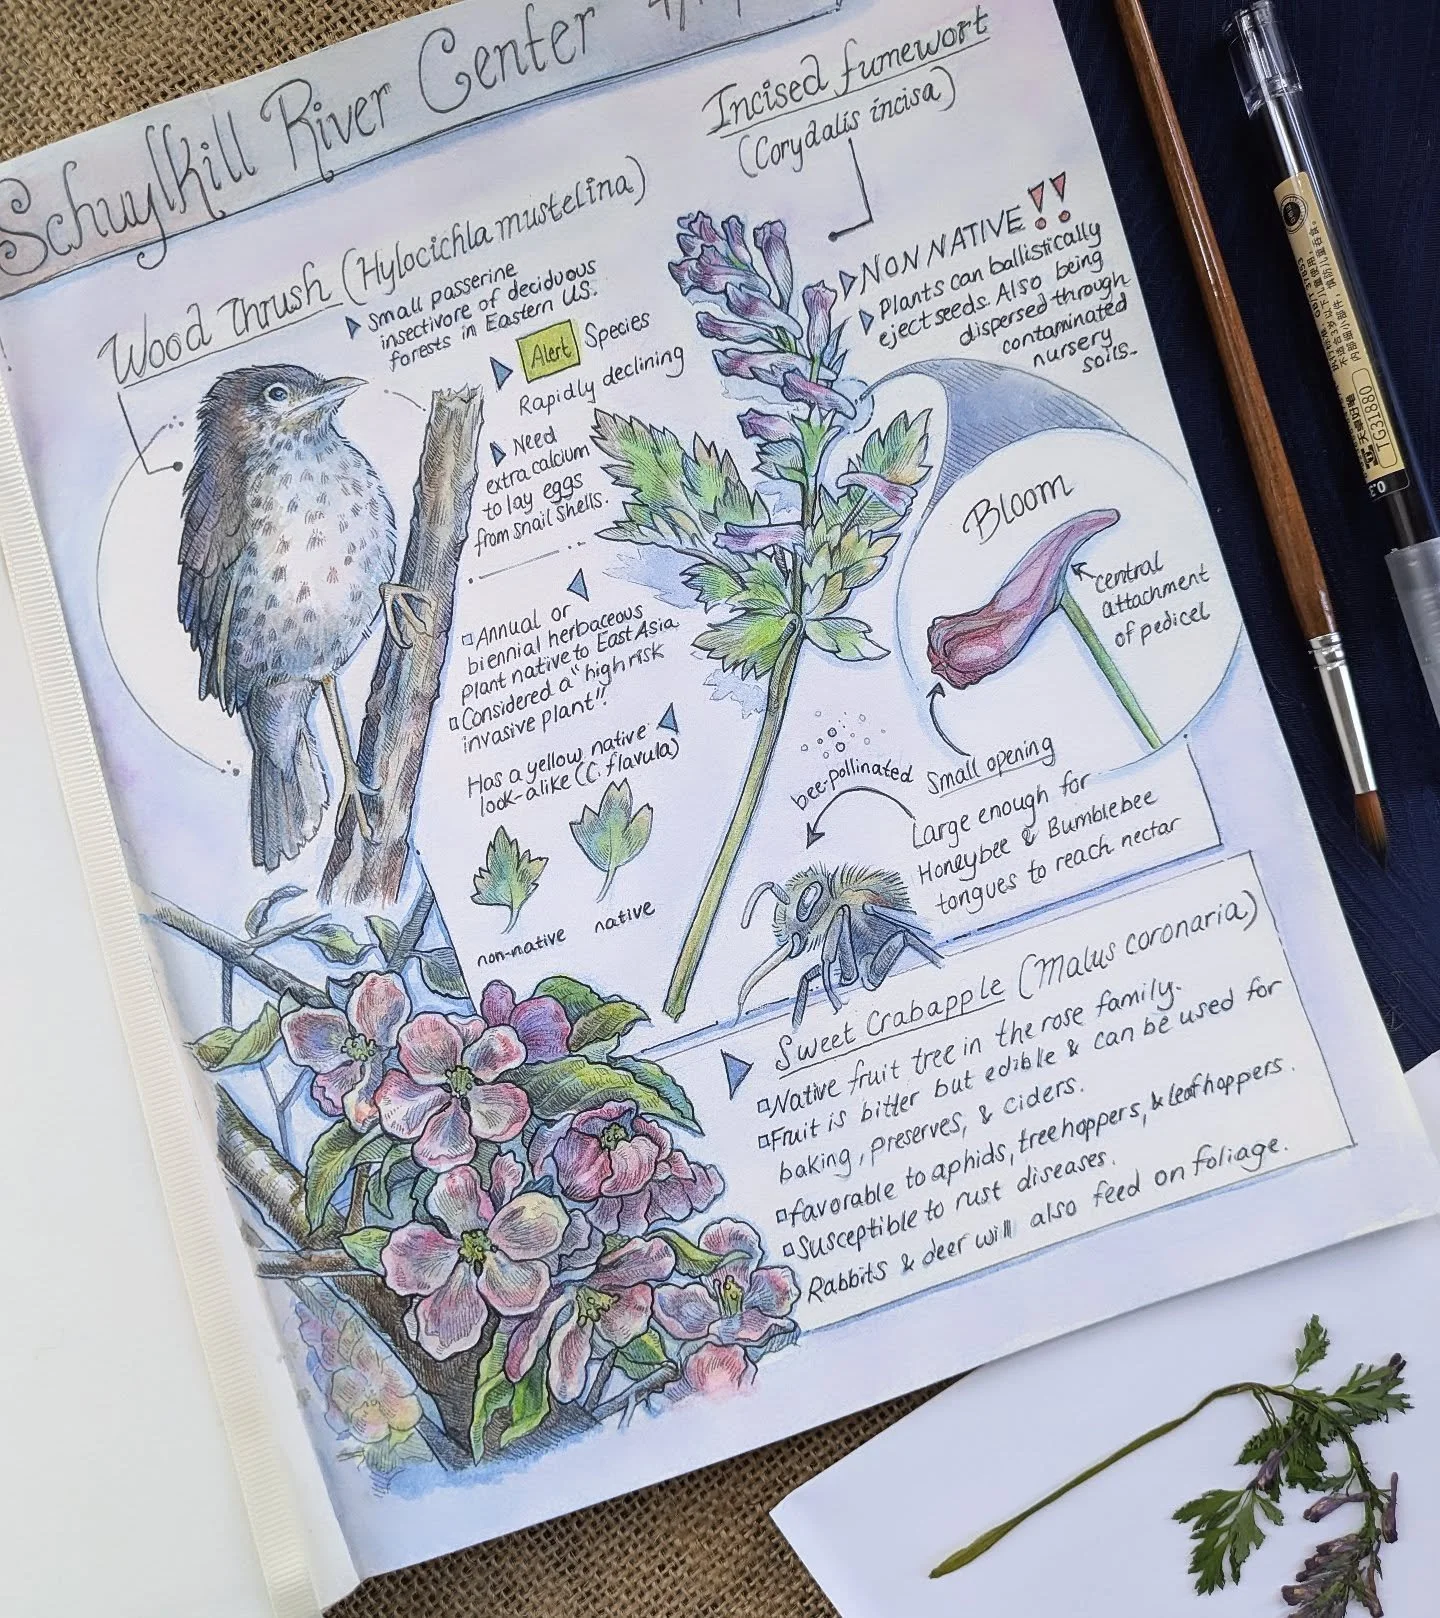 Schuylkill River Center
Wood Thrush (Hylocichla mustelina)
Small passerine
insectivore of deciduous
forests in Eastern US.
Alert Species
Rapidly declining
Need
extra calcium
to lay eggs
from snail shells.
Incised fumewort
(Corydalis incisa)
NON NATIVE!!
Plants can ballistically
eject seeds. Also being
dispersed through
contaminated
nursery
soils.
Bloom
central
attachment
of pedicel
Annual or
biennial herbaceous
Plant native to East Asia
Considered a "high risk
invasive plant"!
Has a yellow native
look-alike (C. flavula)
non-native
native
bee-pollinated
Small opening
Large enough for
Honeybee & Bumblebee
tongues to reach nectar
Sweet Crabapple (Malus coronaria)
Native fruit tree in the rose family.
Fruit is bitter but edible & can be used for
baking, preserves, & ciders.
favorable to aphids, treehoppers, & leafhoppers.
Susceptible to rust diseases.
Rabbits & deer will also feed on foliage.
TG31880